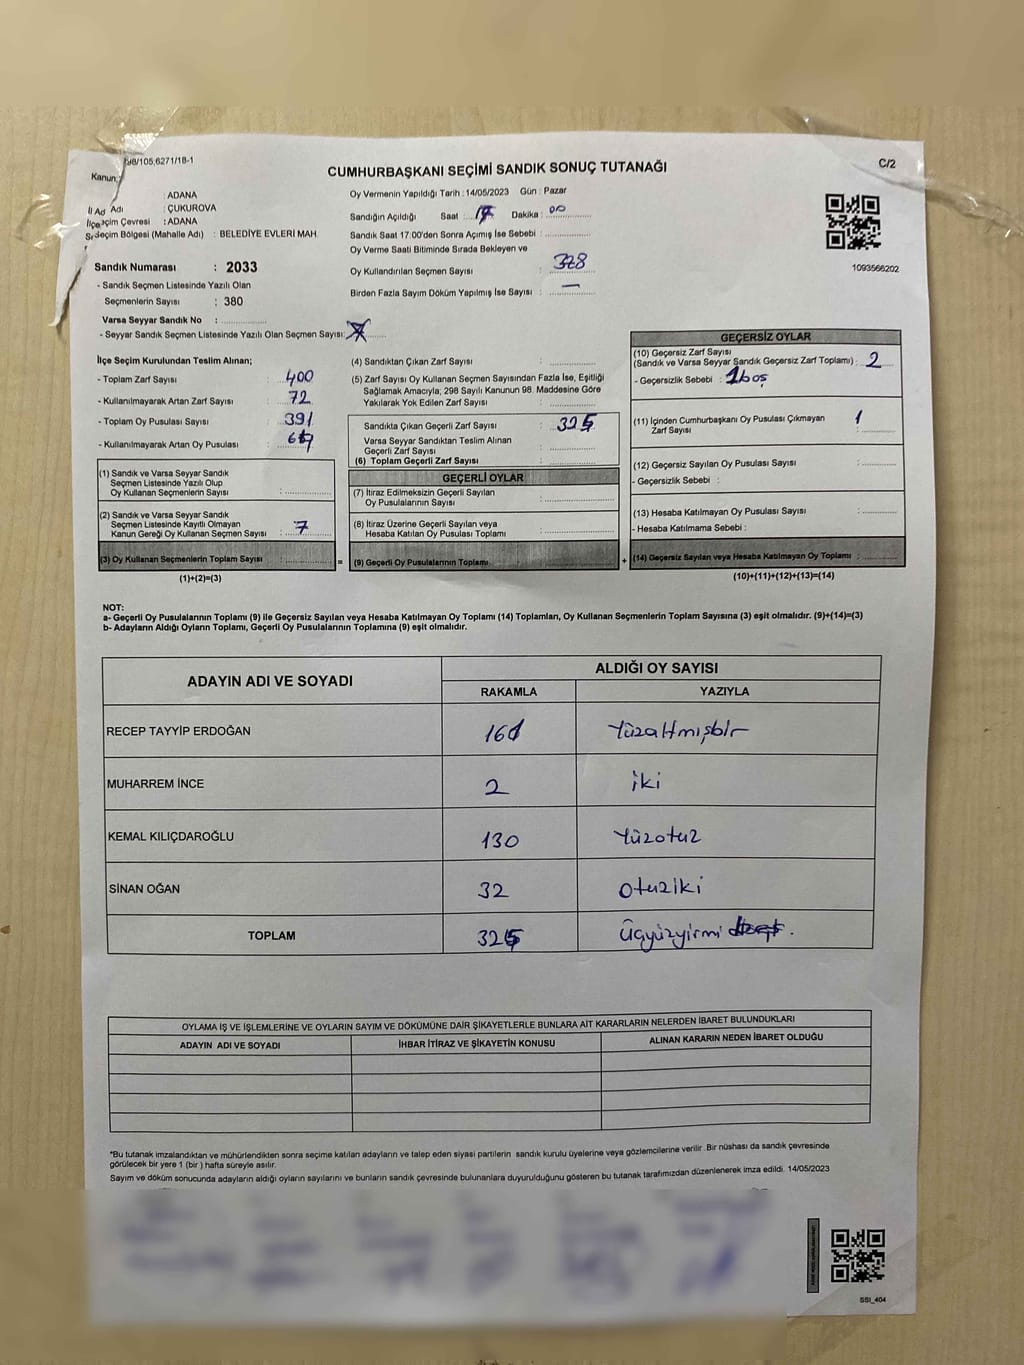 98/105,6271/18-1
C/2
CUMHURBAŞKANI SEÇİMİ SANDIK SONUÇ TUTANAĞI
Kanun:
İl Ad Adı : ADANA
: ÇUKUROVA
İlçe eçim Çevresi : ADANA
Seçim Bölgesi (Mahalle Adı) : BELEDİYE EVLERİ MAH.
Sandık Numarası : 2033
- Sandık Seçmen Listesinde Yazılı Olan
Seçmenlerin Sayısı : 380
Varsa Seyyar Sandık No :
- Seyyar Sandık Seçmen Listesinde Yazılı Olan Seçmen Sayısı:
Oy Vermenin Yapıldığı Tarih : 14/05/2023 Gün : Pazar
Sandığın Açıldığı Saat : 17 Dakika : 00
Sandık Saat 17:00'den Sonra Açımış İse Sebebi :
Oy Verme Saati Bitiminde Sırada Bekleyen ve
Oy Kullandırılan Seçmen Sayısı : 328
Birden Fazla Sayım Döküm Yapılmış İse Sayısı : —
1093566202
İlçe Seçim Kurulundan Teslim Alınan;
- Toplam Zarf Sayısı : 400
- Kullanılmayarak Artan Zarf Sayısı : 72
- Toplam Oy Pusulası Sayısı : 391
- Kullanılmayarak Artan Oy Pusulası :
(1) Sandık ve Varsa Seyyar Sandık
Seçmen Listesinde Yazılı Olup
Oy Kullanan Seçmenlerin Sayısı :
(2) Sandık ve Varsa Seyyar Sandık
Seçmen Listesinde Kayıtlı Olmayan
Kanun Gereği Oy Kullanan Seçmen Sayısı : 7
(3) Oy Kullanan Seçmenlerin Toplam Sayısı :
(1)+(2)=(3)
=
(4) Sandıktan Çıkan Zarf Sayısı :
(5) Zarf Sayısı Oy Kullanan Seçmen Sayısından Fazla İse, Eşitliği
Sağlamak Amacıyla; 298 Sayılı Kanunun 98. Maddesine Göre
Yakılarak Yok Edilen Zarf Sayısı :
Sandıkta Çıkan Geçerli Zarf Sayısı : 325
Varsa Seyyar Sandıktan Teslim Alınan
Geçerli Zarf Sayısı :
(6) Toplam Geçerli Zarf Sayısı :
GEÇERLİ OYLAR
(7) İtiraz Edilmeksizin Geçerli Sayılan
Oy Pusulalarının Sayısı :
(8) İtiraz Üzerine Geçerli Sayılan veya
Hesaba Katılan Oy Pusulası Toplamı :
(9) Geçerli Oy Pusulalarının Toplamı :
+
GEÇERSİZ OYLAR
(10) Geçersiz Zarf Sayısı
(Sandık ve Varsa Seyyar Sandık Geçersiz Zarf Toplamı) : 2
- Geçersizlik Sebebi : 1 boş
(11) İçinden Cumhurbaşkanı Oy Pusulası Çıkmayan
Zarf Sayısı : 1
(12) Geçersiz Sayılan Oy Pusulası Sayısı :
- Geçersizlik Sebebi :
(13) Hesaba Katılmayan Oy Pusulası Sayısı :
- Hesaba Katılmama Sebebi :
(14) Geçersiz Sayılan veya Hesaba Katılmayan Oy Toplamı :
(10)+(11)+(12)+(13)=(14)
NOT:
a- Geçerli Oy Pusulalarının Toplamı (9) ile Geçersiz Sayılan veya Hesaba Katılmayan Oy Toplamı (14) Toplamları, Oy Kullanan Seçmenlerin Toplam Sayısına (3) eşit olmalıdır. (9)+(14)=(3)
b- Adayların Aldığı Oyların Toplamı, Geçerli Oy Pusulalarının Toplamına (9) eşit olmalıdır.
ADAYIN ADI VE SOYADI
ALDIĞI OY SAYISI
RAKAMLA YAZIYLA
RECEP TAYYİP ERDOĞAN 161 Yüzaltmışbir
MUHARREM İNCE 2 iki
KEMAL KILIÇDAROĞLU 130 Yüzotuz
SİNAN OĞAN 32 Otuziki
TOPLAM 325 Üçyüzyirmi
OYLAMA İŞ VE İŞLEMLERİNE VE OYLARIN SAYIM VE DÖKÜMÜNE DAİR ŞİKAYETLERLE BUNLARA AİT KARARLARIN NELERDEN İBARET BULUNDUKLARI
ADAYIN ADI VE SOYADI İHBAR İTİRAZ VE ŞİKAYETİN KONUSU ALINAN KARARIN NEDEN İBARET OLDUĞU
*Bu tutanak imzalandıktan ve mühürlendikten sonra seçime katılan adayların ve talep eden siyasi partilerin sandık kurulu üyelerine veya gözlemcilerine verilir. Bir nüshası da sandık çevresinde
görülecek bir yere 1 (bir) hafta süreyle asılır.
Sayım ve döküm sonucunda adayların aldığı oyların sayılarını ve bunların sandık çevresinde bulunanlara duyurulduğunu gösteren bu tutanak tarafımızdan düzenlenerek imza edildi. 14/05/2023
SSI_404